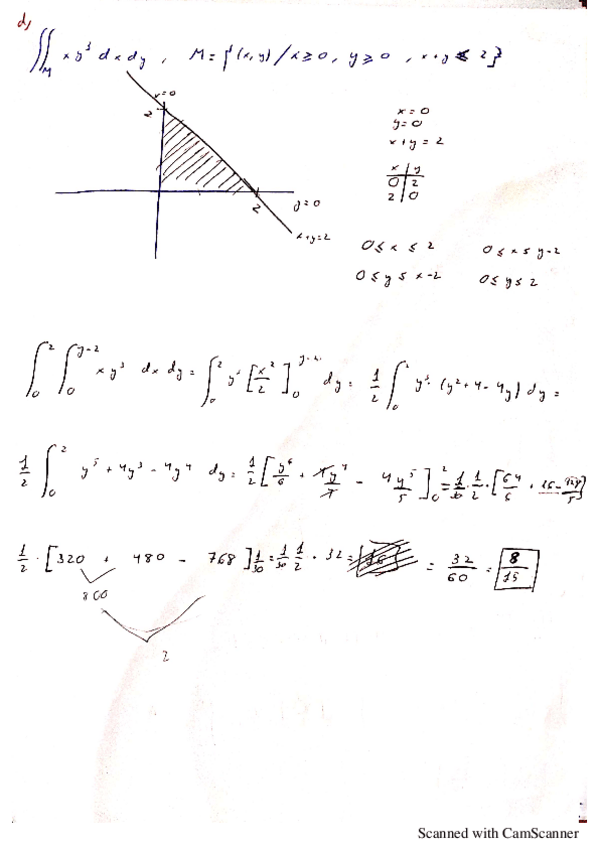 d)
∬_M xy³ dx dy , M = {(x,y) / x ≥ 0, y ≥ 0, x+y ≤ 2}
x=0
2
2
y=0
x+y=2
x=0
y=0
x+y=2
x | y
0 | 2
2 | 0
0 ≤ x ≤ 2 0 ≤ x ≤ y-2
0 ≤ y ≤ x-2 0 ≤ y ≤ 2
∫₀² ∫₀^(y-2) xy³ dx dy = ∫₀² y³ [x²/2]₀ dy = 1/2 ∫₀² y³ · (y²+4-4y) dy =
1/2 ∫₀² y⁵ + 4y³ - 4y⁴ dy = 1/2 [y⁶/6 + 4y⁴/4 - 4y⁵/5]₀² = 1/30 · 1/2 · [64/6 + 16 -
1/2 · [320 + 480 - 768] 1/30 = 1/30 · 1/2 · 32 = = 32/60 = 8/15
800
Scanned with CamScanner